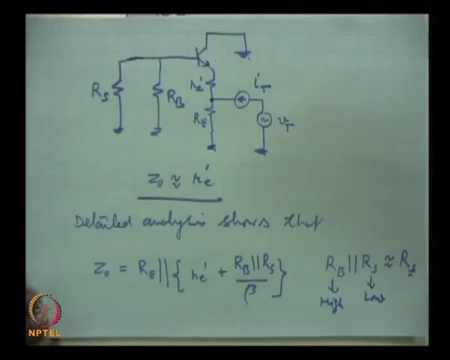 R_S
R_B
r_e'
R_E
i_T
v_T
Z_o ≈ r_e'
Detailed analysis shows that
Z_o = R_E || { r_e' + (R_B||R_S)/β }
R_B || R_S ≈ R_S
High
Low
NPTEL